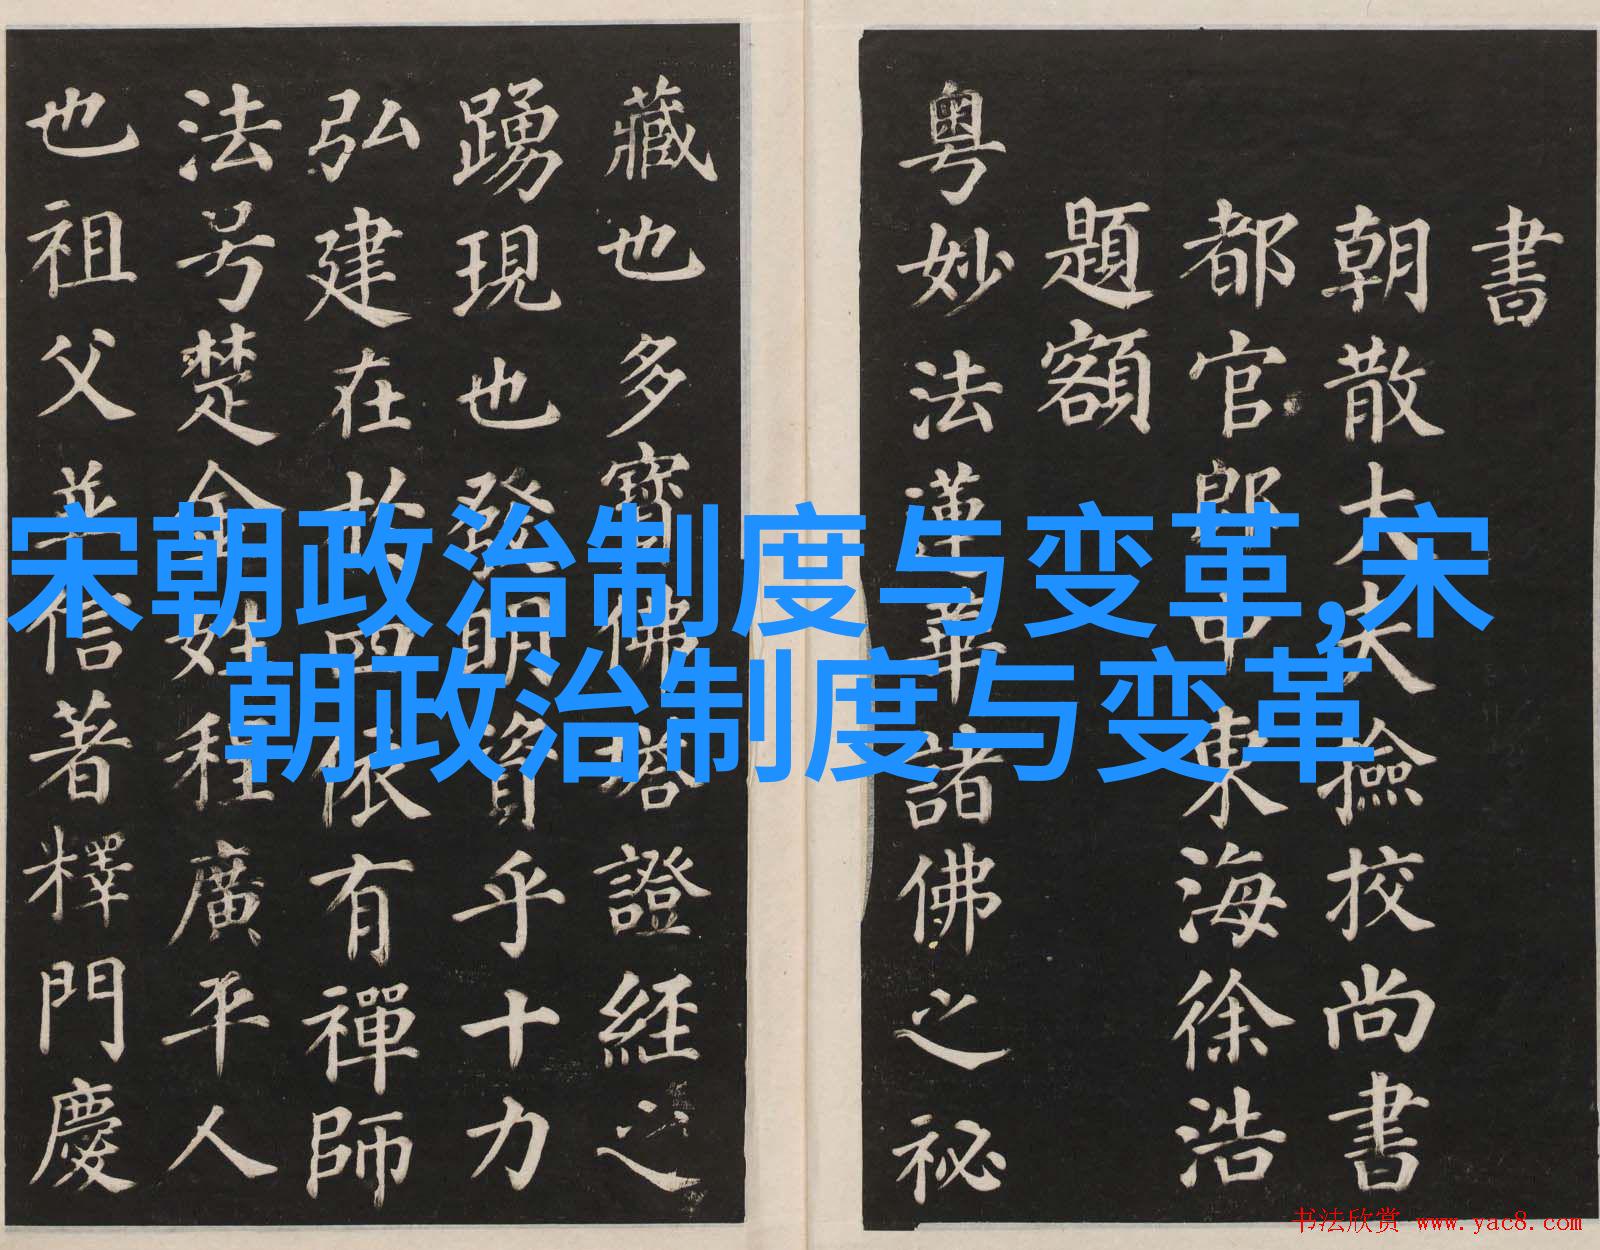 宋朝政治制度与变革,宋
朝政治制度与变革
書
朝散大夫撿校尚書
都官郎中東海徐浩
題額
粤妙法蓮華諸佛之祕
藏也多寳佛塔證經之
踴現也發明資乎十力
弘建在於四依有禪師
法号楚金姓程廣平人
也祖父並信著釋門慶
书法欣赏 www.yac8.com